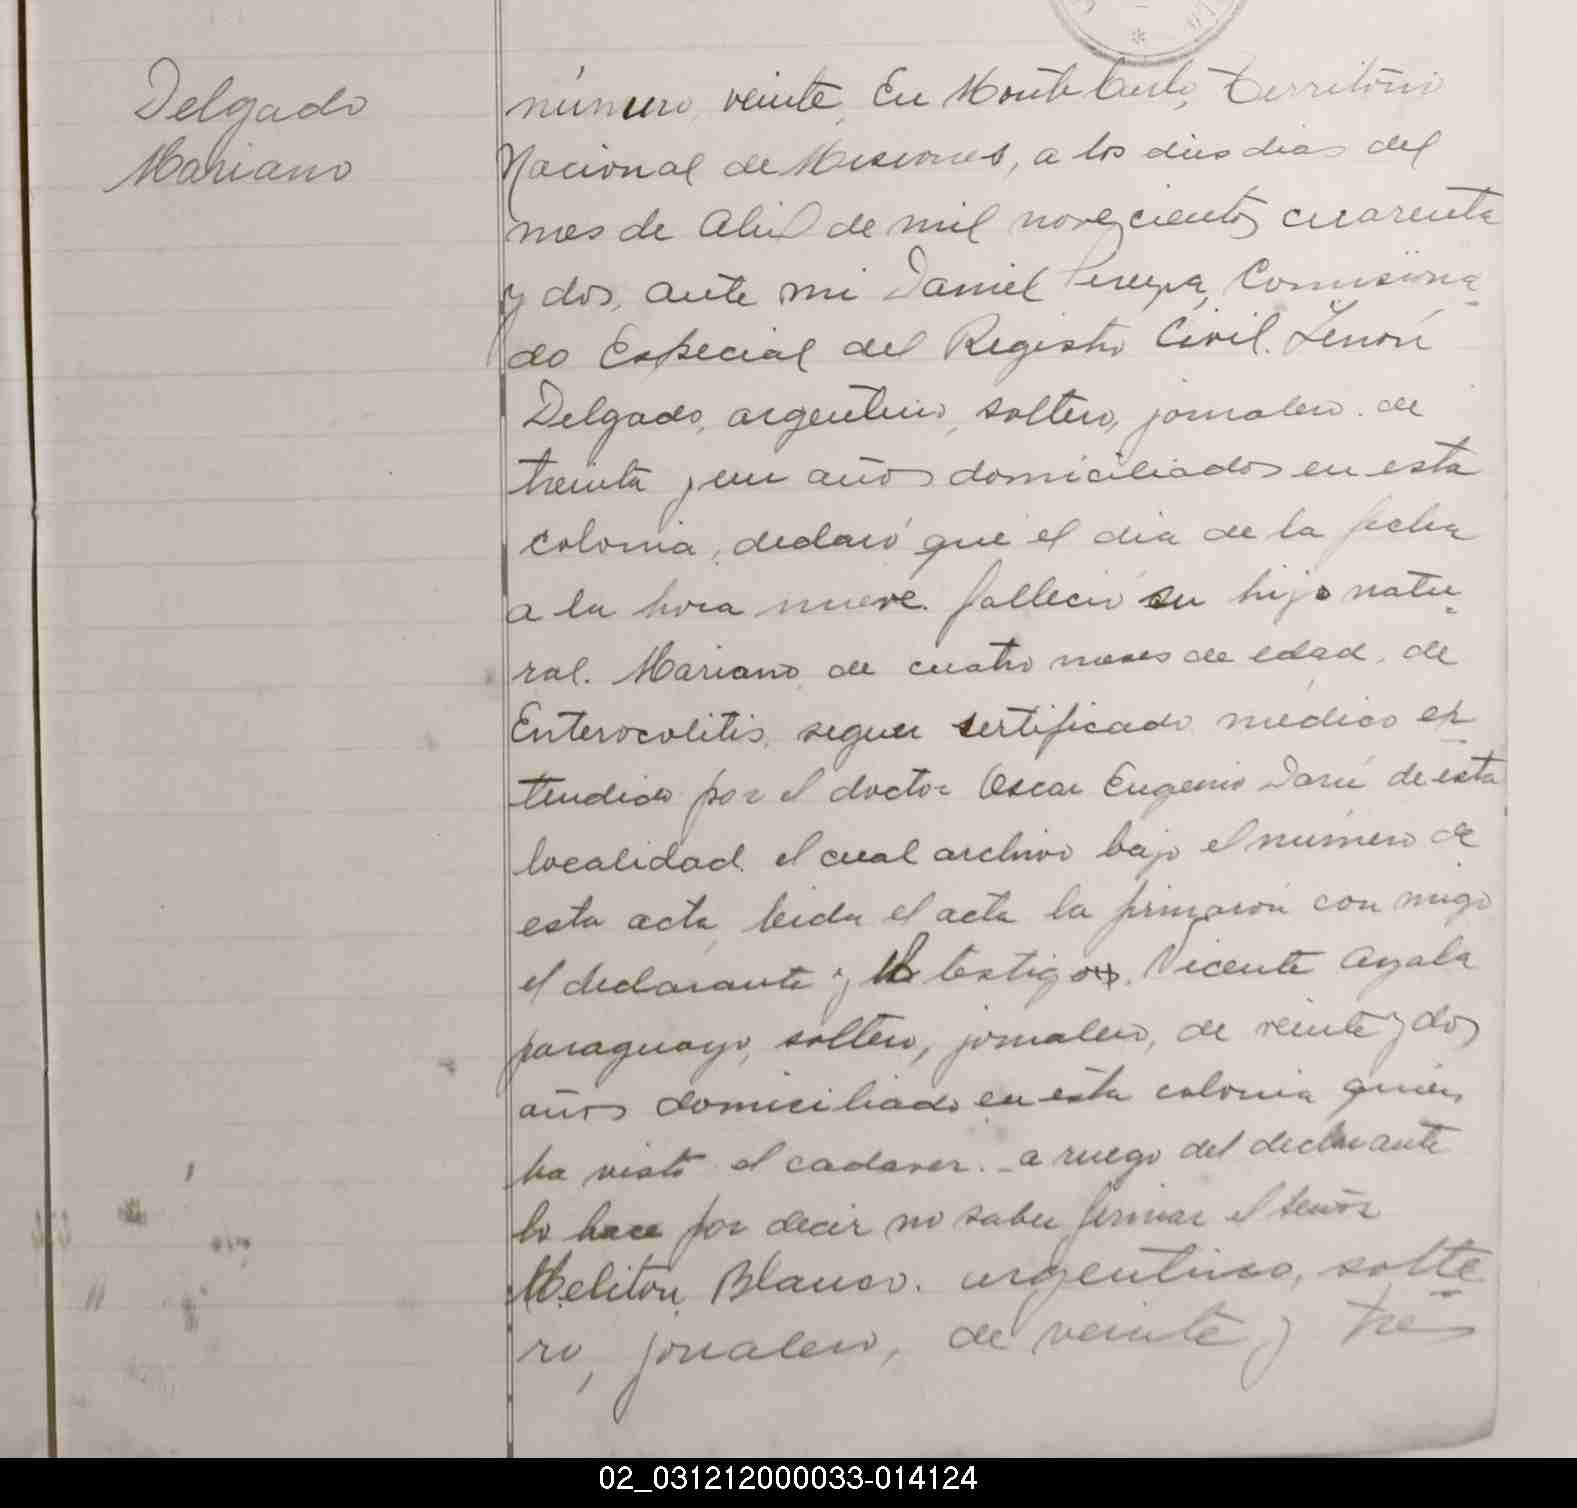 Delgado
Mariano
número, veinte, En Monte Carlo, Territorio
Nacional de Misiones, a los dies dias del
mes de Abril de mil novecientos cuarenta
y dos, ante mi Daniel Pereyra, Comisiona-
do Especial del Registro Civil. Zenón
Delgado, argentino, soltero, jornalero. de
treinta y un años domiciliados en esta
colonia, declaró que el dia de la fecha
a la hora nueve. falleció su hijo natu-
ral. Mariano de cuatro meses de edad, de
Enterocolitis, segun sertificado médico ex-
tendido por el doctor Oscar Eugenio Darú de esta
localidad el cual archivo bajo el número de
esta acta, leida el acta la firmaron con migo
el declarante y testigo. Vicente Ayala
paraguayo, soltero, jornalero, de veinte y dos
años domiciliado en esta colonia quien,
ha visto el cadaver. - a ruego del declarante
lo hace por decir no saber firmar el señor
Meliton Blanco. argentino, solte-
ro, jornalero, de veinte y tres
02_031212000033-014124